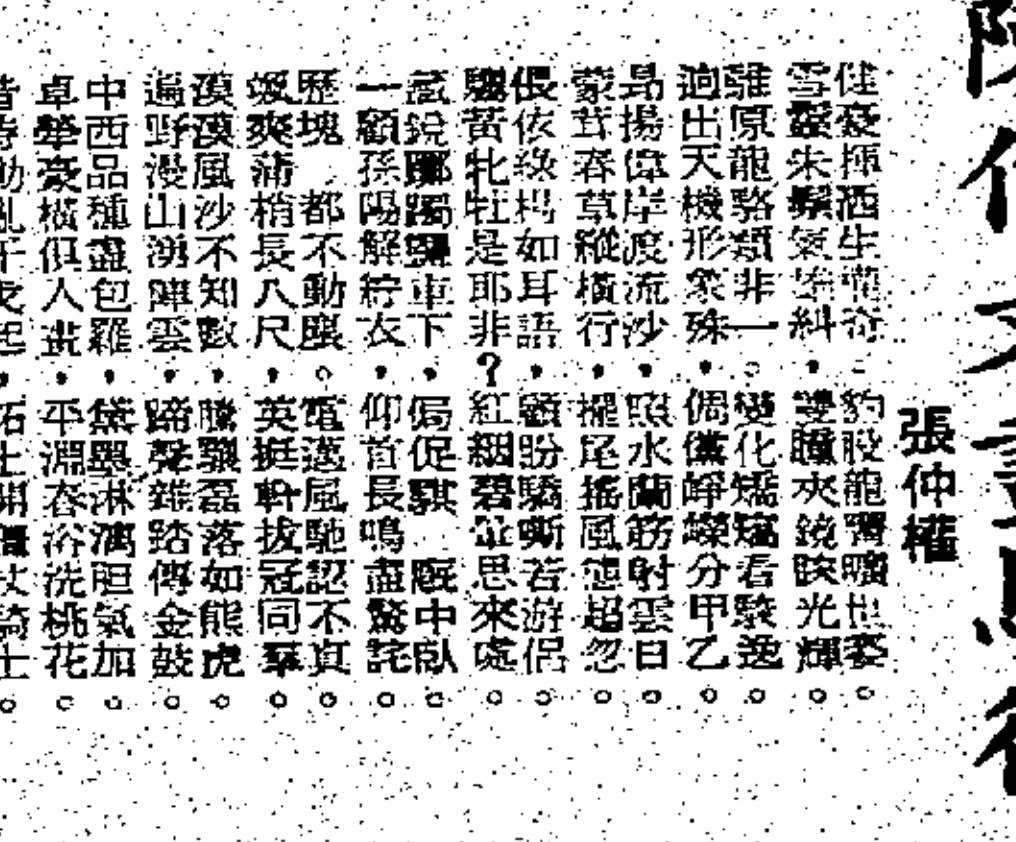 張仲權
健豪揮洒生龍奇。豹股龍臀曠世姿。
雪鬣朱鬃氣糾,雙瞳夾鏡映光輝。
騅原龍駱類非一。變化矯矯看駿逸。
迥出天機形象殊,倜儻崢嶸分甲乙。
昂揚偉岸渡流沙,照水蘭筋射雲日。
蒙茸春草縱橫行,擺尾搖風態超忽。
依綠楊如耳語,顧盼驕嘶若游侶。
驪黃牝牡是耶非?紅碧思來處。
銳躑躅鹽車下,侷促騏 厩中臥。
一顧孫陽解紵衣,仰首長鳴盡驚詫。
歷塊 都不動塵。電邁風馳認不真。
颯爽蒲梢長八尺,英挺軒拔冠同羣。
漠漠風沙不知數,騰驤磊落如熊虎。
遍野漫山湧陣雲,蹄聲雜踏傳金鼓。
中西品種盡包羅,黛墨淋漓胆氣加。
卓犖豪橫俱人畫,平淵春浴洗桃花。
昔時動亂干戈起,拓土開疆仗騎士。